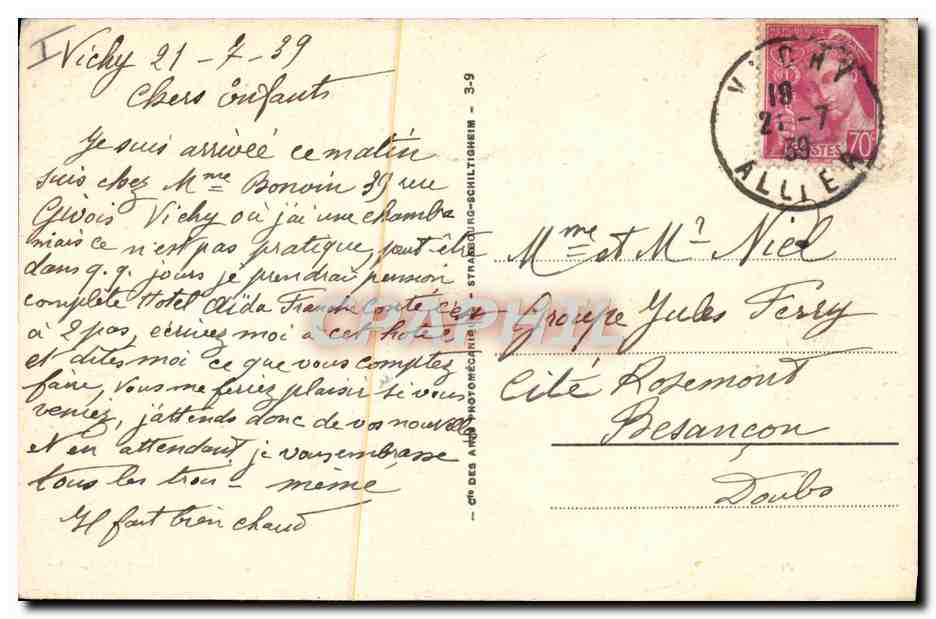 I
Vichy 21 - 7 - 39
Chers Enfants
Je suis arrivée ce matin
suis chez Mme Bonvin 39 rue
Givois Vichy où j'ai une chambre
mais ce n'est pas pratique, peut être
dans q.q. jours je prendrai pension
complète Hotel Aïda Franche Comté c'est
à 2 pas, écrivez moi à cet hotel
et dites moi ce que vous comptez
faire, vous me feriez plaisir si vous
veniez, j'attends donc de vos nouvelles
et en attendant je vous embrasse
tous les trois - mémé
Il fait bien chaud
— Cie DES ARTS PHOTOMÉCANIQUES - STRASBOURG-SCHILTIGHEIM - 3-9
VICHY
18
21 -7
39
ALLIER
POSTES
70c
Mme et Mr Niel
Groupe Jules Ferry
Cité Rosemont
Besançon
Doubs
CPAPHIL